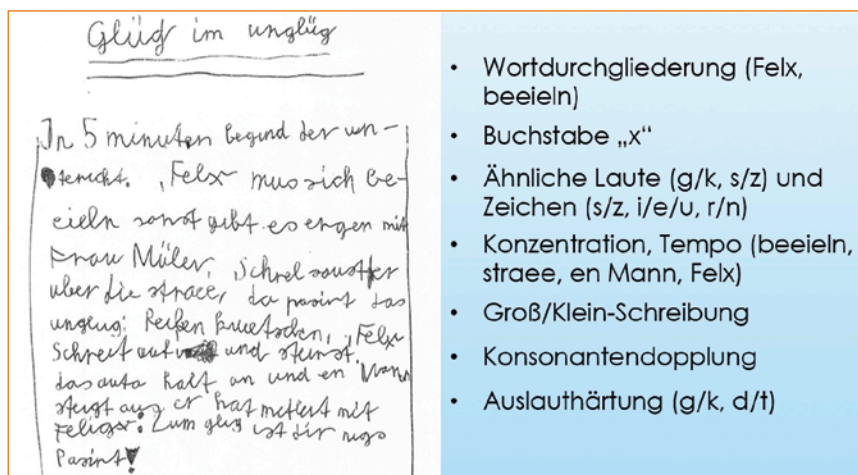 Glüg im unglüg
In 5 minuten begind der un-
tericht. Felx mus sich be-
eieln sonst gibt es ergen mit
Frau Müler, schnel saust er
uber die straee, da pasirt das
unglug: Reifen kwetschen, Felx
Schreit auf und sturst.
das auto halt an und en Mann
steigt aus er hat metleit mit
Zum glug ist dir nigs
Pasirt!
• Wortdurchgliederung (Felx,
beeieln)
• Buchstabe „x“
• Ähnliche Laute (g/k, s/z) und
Zeichen (s/z, i/e/u, r/n)
• Konzentration, Tempo (beeieln,
straee, en Mann, Felx)
• Groß/Klein-Schreibung
• Konsonantendopplung
• Auslauthärtung (g/k, d/t)